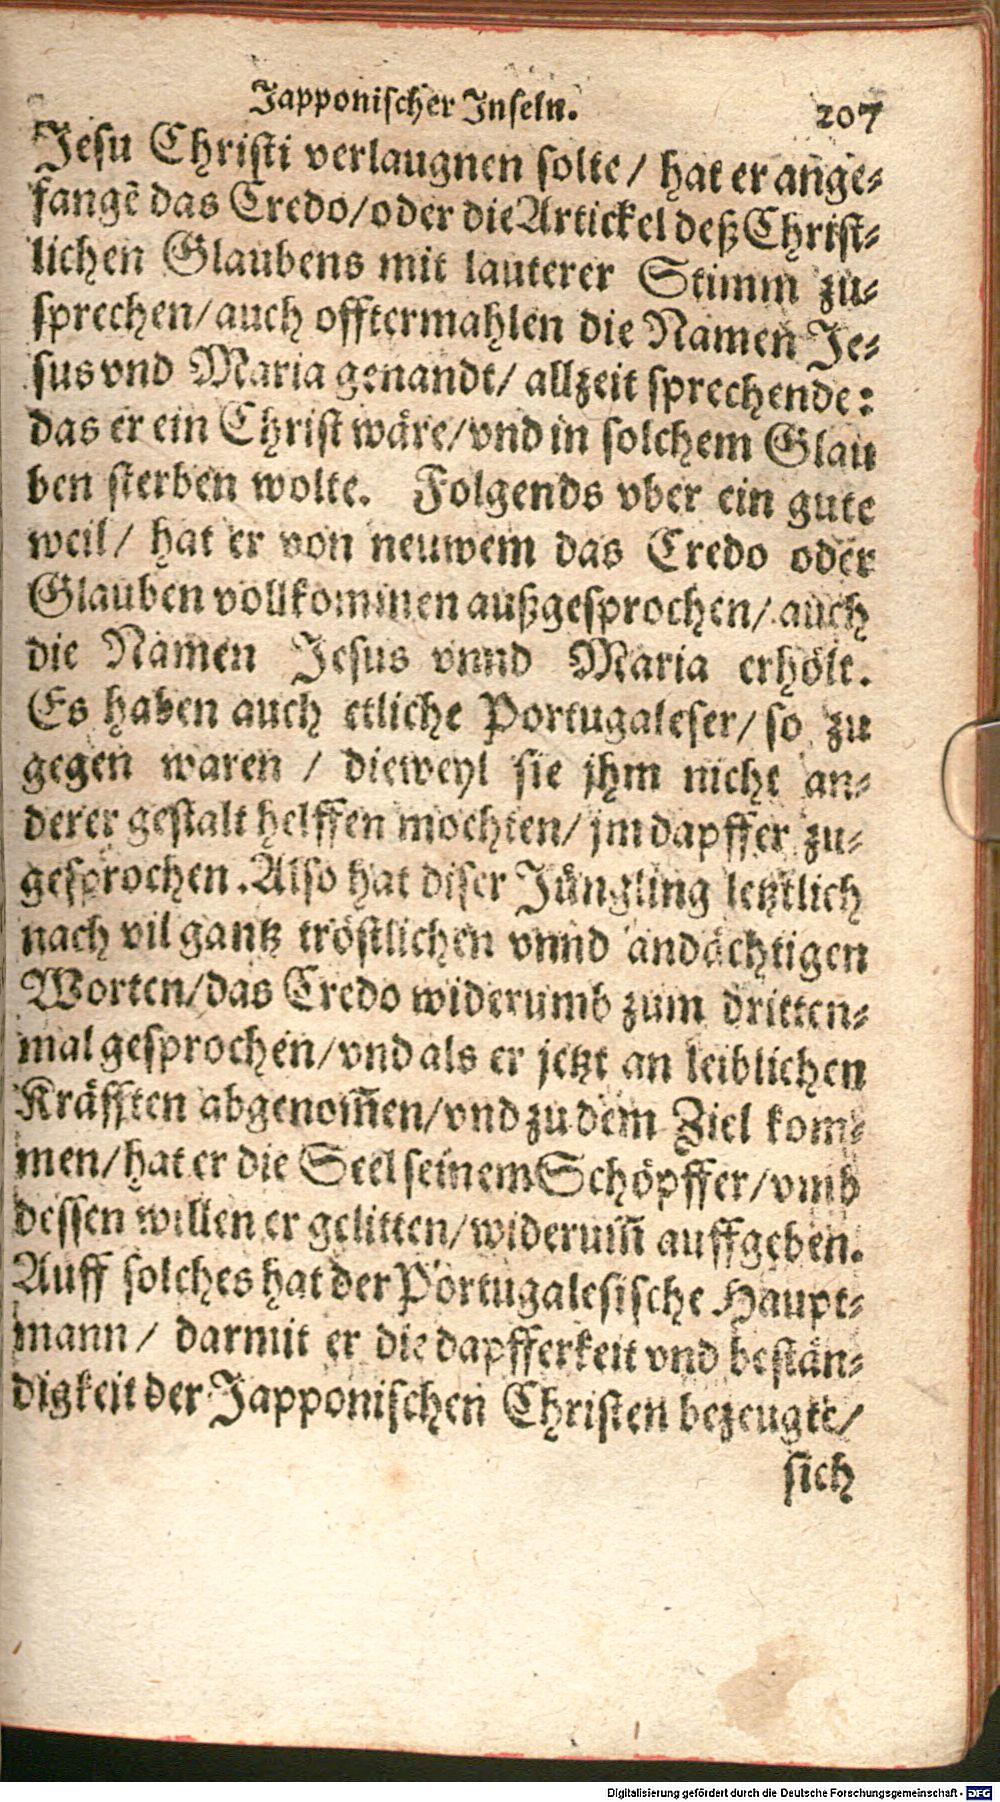 Japponischer Inseln. 207
Jesu Christi verlaugnen solte/ hat er ange-
fangẽ das Credo/oder die Artickel deß Christ-
lichen Glaubens mit lauterer Stimm zu-
sprechen/auch offtermahlen die Namen Je-
sus vnd Maria genandt/ allzeit sprechende:
das er ein Christ wäre/vnd in solchem Glau
ben sterben wolte. Folgends vber ein gute
weil/ hat er von neuwem das Credo oder
Glauben vollkommen außgesprochen/ auch
die Namen Jesus vnnd Maria erhölt.
Es haben auch etliche Portugaleser/ so zu
gegen waren / dieweyl sie jhm nicht an-
derer gestalt helffen mochten/ jm dapffer zu-
gesprochen. Also hat diser Jüngling letztlich
nach vil gantz tröstlichen vnnd andächtigen
Worten/das Credo widerumb zum dritten-
mal gesprochen/vnd als er jetzt an leiblichen
Kräfften abgenom̃en/vnd zu dem Ziel kom-
men/hat er die Seel seinem Schöpffer/vmb
dessen willen er gelitten/widerum̃ auffgeben.
Auff solches hat der Portugalesische Haupt-
mann/ darmit er die dapfferkeit vnd bestän-
digkeit der Japponischen Christen bezeugte/
sich
Digitalisierung gefördert durch die Deutsche Forschungsgemeinschaft - DFG